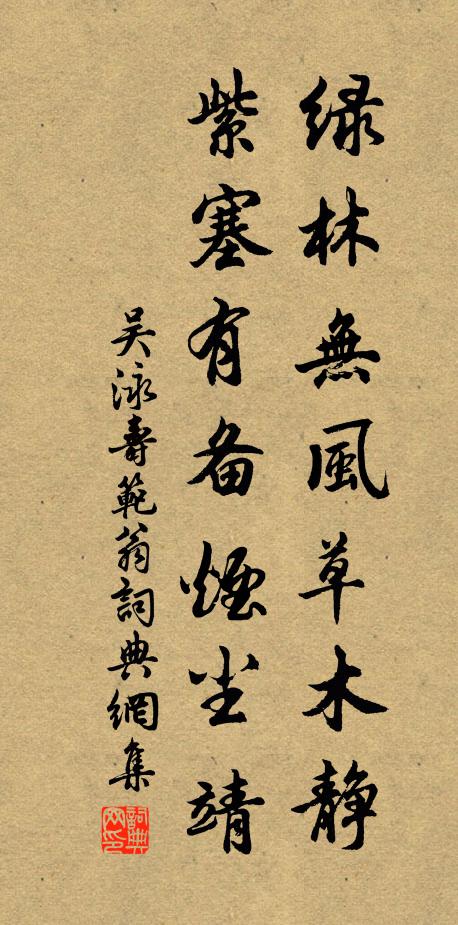 绿林無風草木静
紫塞有备煙尘靖
吴泳壽範翁詞典網集
詞典網印